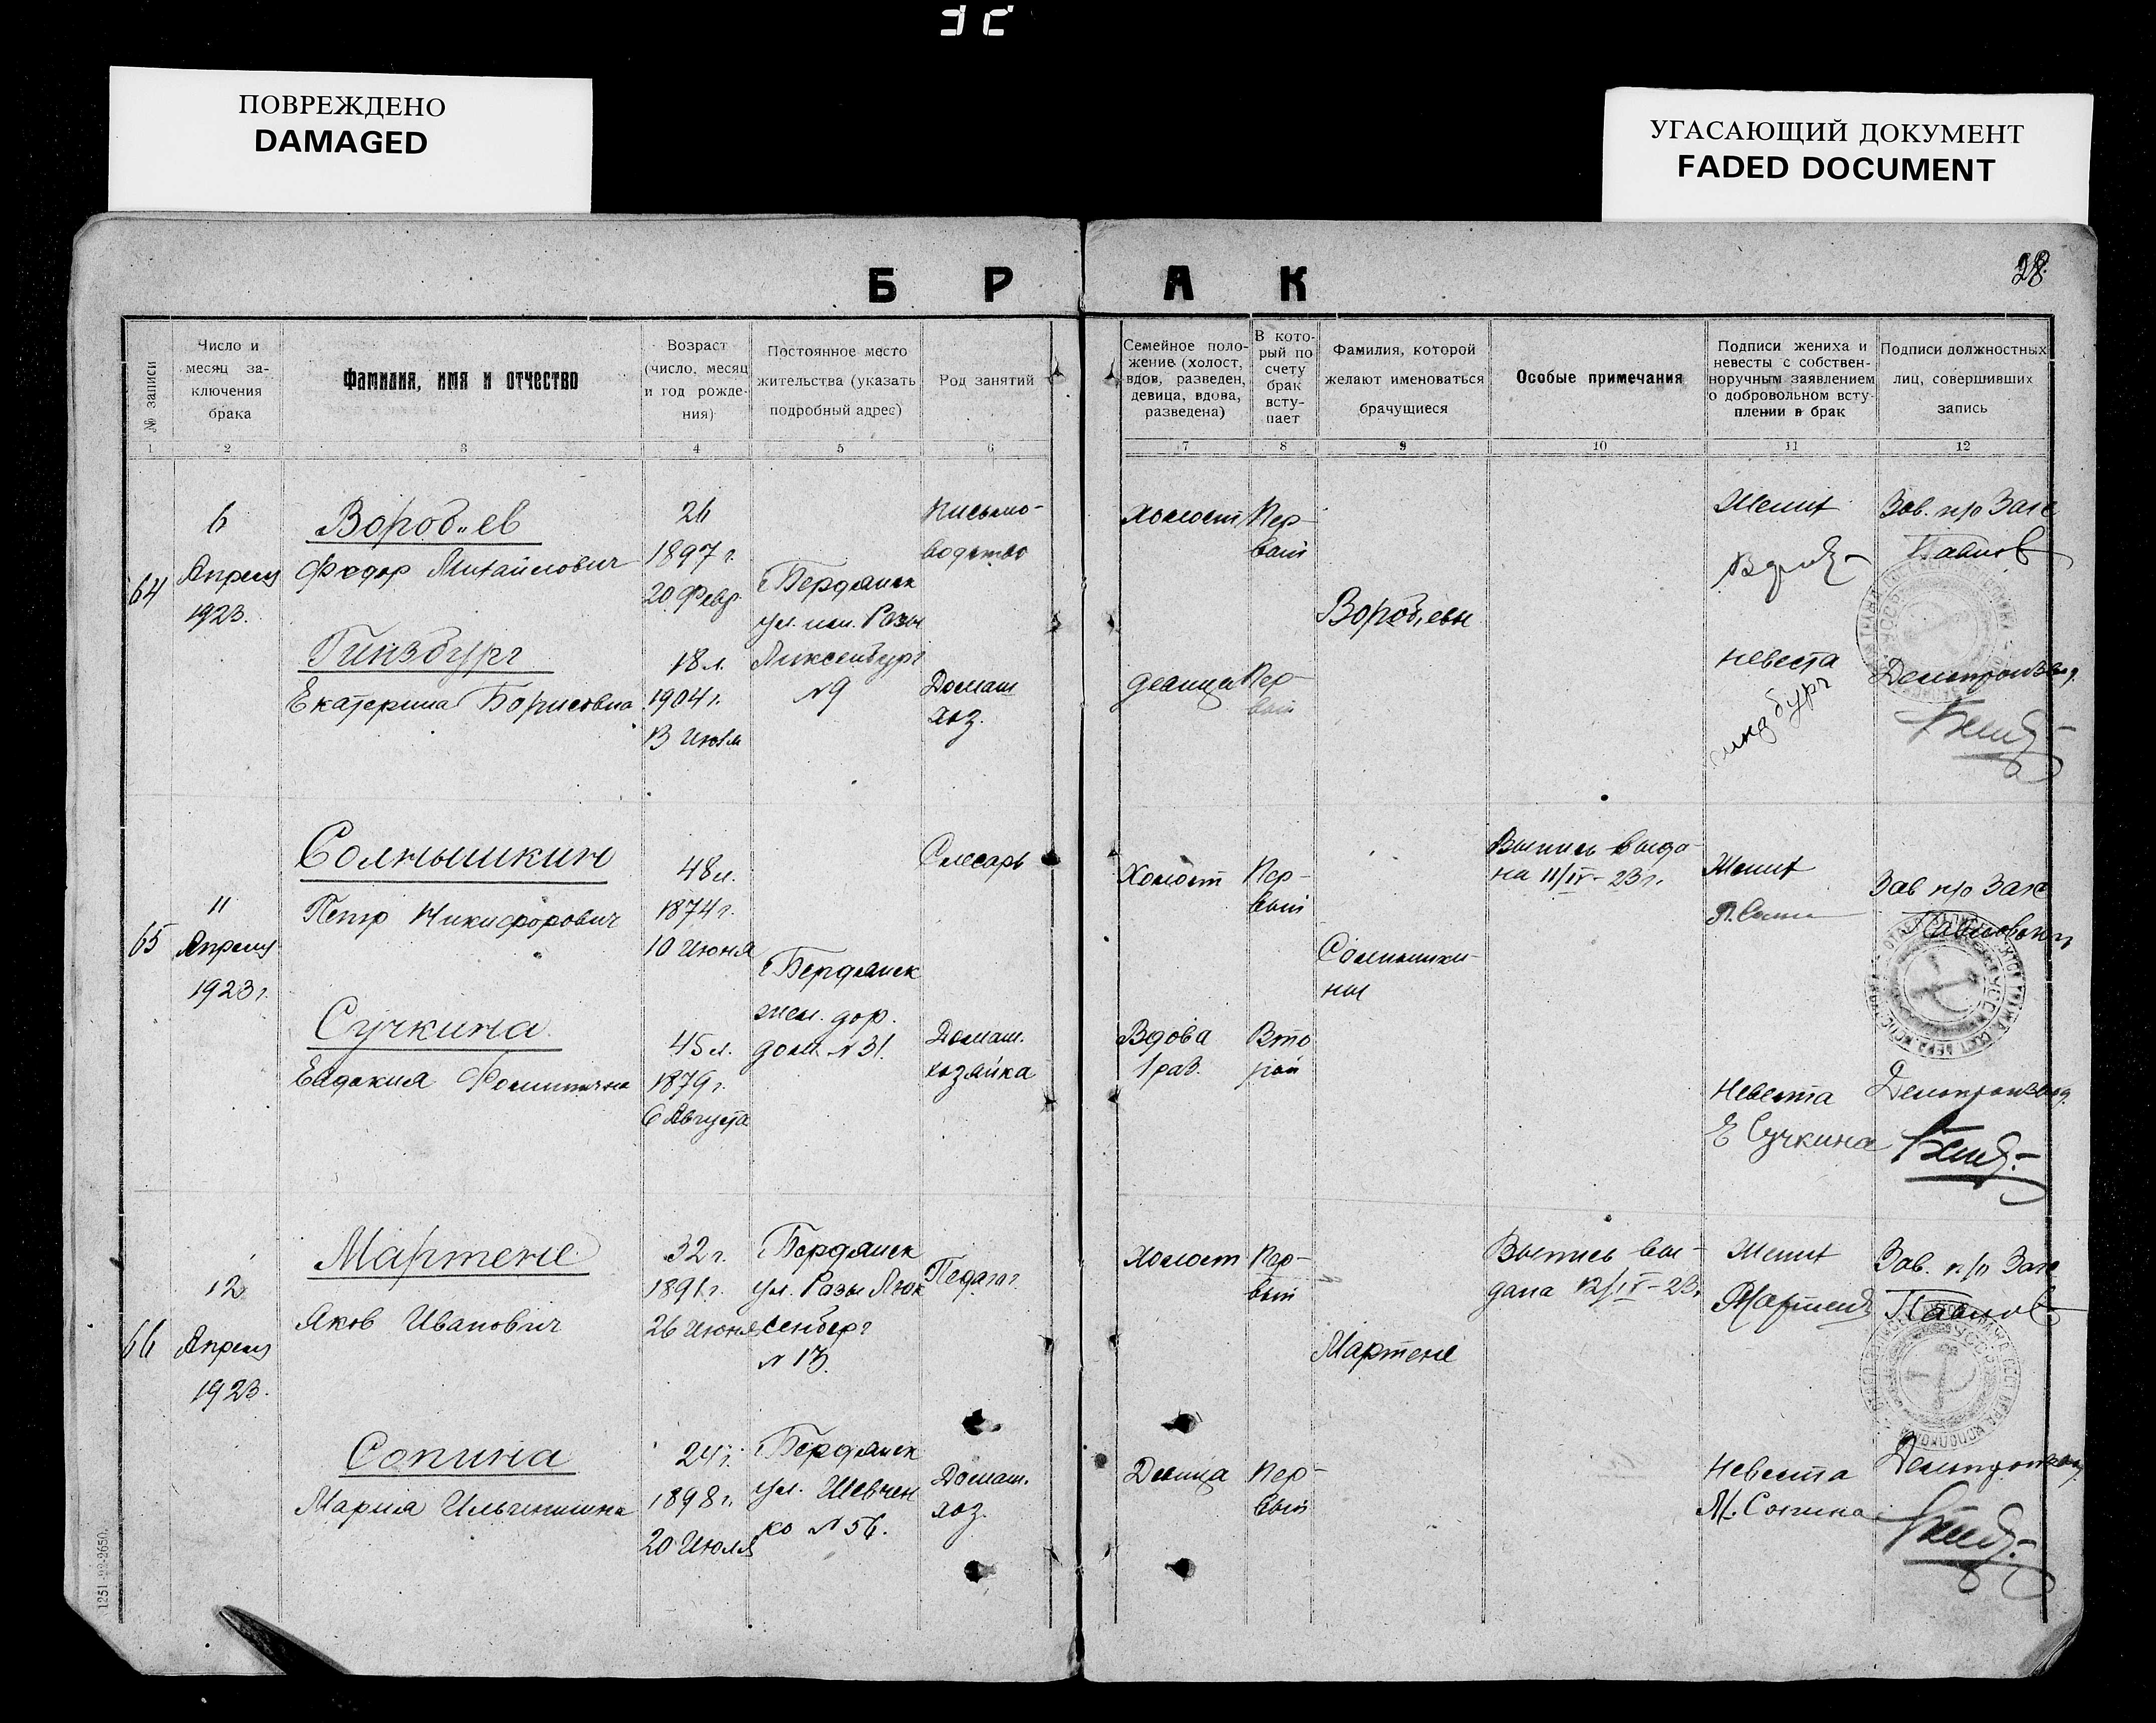 ПОВРЕЖДЕНО
DAMAGED
УГАСАЮЩИЙ ДОКУМЕНТ
FADED DOCUMENT
28
БРАК
№ записи
Число и
месяц за-
ключения
брака
Фамилия, имя и отчество
Возраст
(число, месяц
и год рожде-
ния)
Постоянное место
жительства (указать
подробный адрес)
Род занятий
Семейное поло-
жение (холост,
вдов, разведен,
девица, вдова,
разведена)
В кото-
рый по
счету
брак
всту-
пает
Фамилия, которой
желают именоваться
брачущиеся
Особые примечания
Подписи жениха и
невесты с собствен-
норучным заявлением
о добровольном всту-
плении в брак
Подписи должностных
лиц, совершивших
запись
1 2 3 4 5 6 7 8 9 10 11 12
64
6
Апреля
1923.
Вороб"ев
Федор Михайлович
26
1897 г.
20 Февр.
г. Бердянск
ул. им. Розы
Люксенбург
№ 9
Письмо-
водство
Холост
Пер-
вый
Вороб"евы
Жених
Зав. п/о Загс
Павлов
Гинзбург
Екатерина Борисовна
18 л.
1904 г.
13 Июля
Домаш
хоз.
девица
Пер-
вый
Невеста
Делопроизвод.
65
11
Апреля
1923 г.
Солнышкин
Петр Никифорович
48 л.
1874 г.
10 Июня
г. Бердянск
жел. дор.
дом № 31.
Слесарь
Холост
Пер-
вый
Солнышки-
ны
Выпись выда-
на 11/IV-23 г.
Жених
Зав п/о Загс
Сучкина
Евдокия Фоминична
45 л.
1879 г.
6 Августа
Домаш.
хозяйка
Вдова
1 раз.
Вто
рой
Невеста
Е Сучкина
Делопроизвод.
66
12
Апреля
1923.
Мартене
Яков Иванович
32 г.
1891 г.
26 Июня
г. Бердянск
ул. Розы Люк
сенберг
№ 13.
Педагог
Холост
Пер-
вый
Мартене
Выпись вы-
дана 12/IV-23.
Жених
Зав. п/о Загс
Павлов
Сопина
Мария Ильинишна
24 г.
1898 г.
20 Июля
г. Бердянск
ул. Шевчен
ко № 56.
Домаш.
хоз.
Девица
Пер-
вый
Невеста
М. Сопина
Делопроизвод